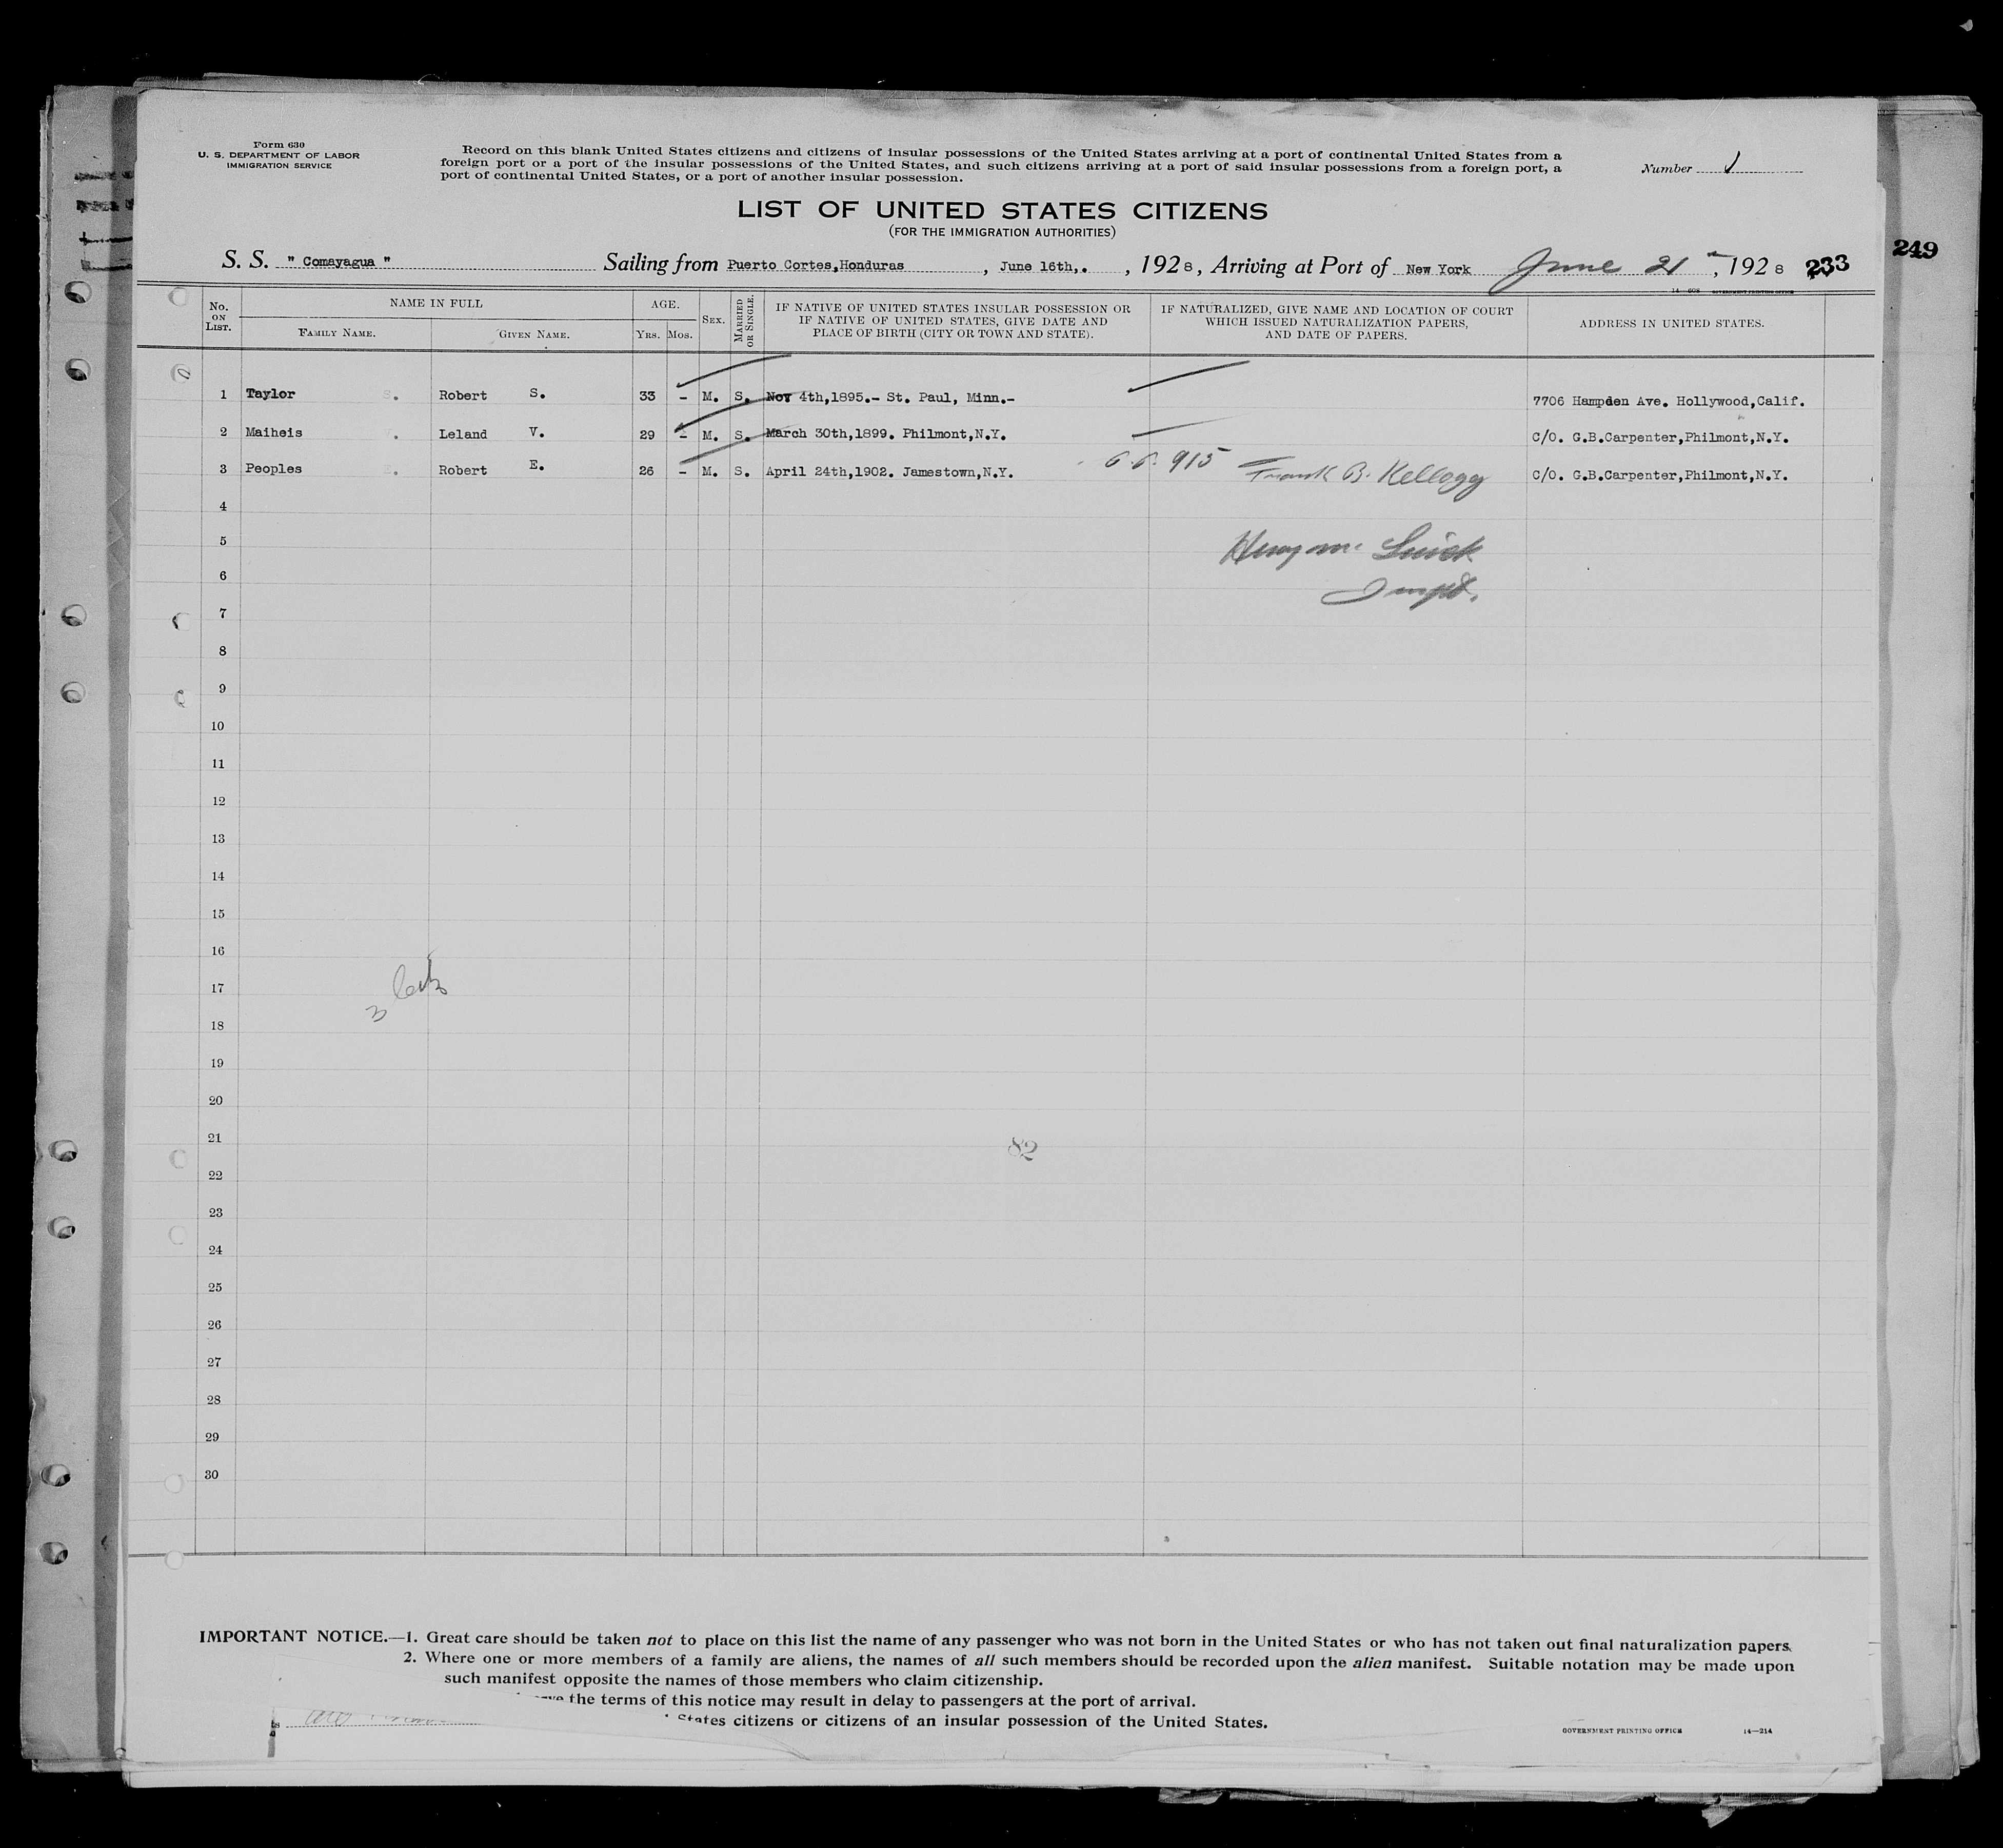 Form 630
U. S. DEPARTMENT OF LABOR
IMMIGRATION SERVICE
Record on this blank United States citizens and citizens of insular possessions of the United States arriving at a port of continental United States from a
foreign port or a port of the insular possessions of the United States, and such citizens arriving at a port of said insular possessions from a foreign port, a
port of continental United States, or a port of another insular possession.
Number 1
LIST OF UNITED STATES CITIZENS
(FOR THE IMMIGRATION AUTHORITIES)
249
S. S. " Comayagua " Sailing from Puerto Cortes,Honduras , June 16th,. , 1928, Arriving at Port of New York June 21 , 1928 233
No. ON LIST. NAME IN FULL FAMILY NAME. GIVEN NAME. AGE. YRS. MOS. SEX. MARRIED OR SINGLE. IF NATIVE OF UNITED STATES INSULAR POSSESSION OR IF NATIVE OF UNITED STATES, GIVE DATE AND PLACE OF BIRTH (CITY OR TOWN AND STATE). IF NATURALIZED, GIVE NAME AND LOCATION OF COURT WHICH ISSUED NATURALIZATION PAPERS, AND DATE OF PAPERS. ADDRESS IN UNITED STATES.
1 Taylor Robert S. 33 - M. S. Nov 4th,1895.- St. Paul, Minn.- 7706 Hampden Ave. Hollywood,Calif.
2 Maiheis Leland V. 29 - M. S. March 30th,1899. Philmont,N.Y. C/O. G.B.Carpenter,Philmont,N.Y.
3 Peoples Robert E. 26 - M. S. April 24th,1902. Jamestown,N.Y. 915 Frank B. Kellogg C/O. G.B.Carpenter,Philmont,N.Y.
4
5
6
7
8
9
10
11
12
13
14
15
16
17
3
18
19
20
21
82
22
23
24
25
26
27
28
29
30
IMPORTANT NOTICE.—1. Great care should be taken not to place on this list the name of any passenger who was not born in the United States or who has not taken out final naturalization papers.
2. Where one or more members of a family are aliens, the names of all such members should be recorded upon the alien manifest. Suitable notation may be made upon
such manifest opposite the names of those members who claim citizenship.
the terms of this notice may result in delay to passengers at the port of arrival.
States citizens or citizens of an insular possession of the United States.
GOVERNMENT PRINTING OFFICE 14—214